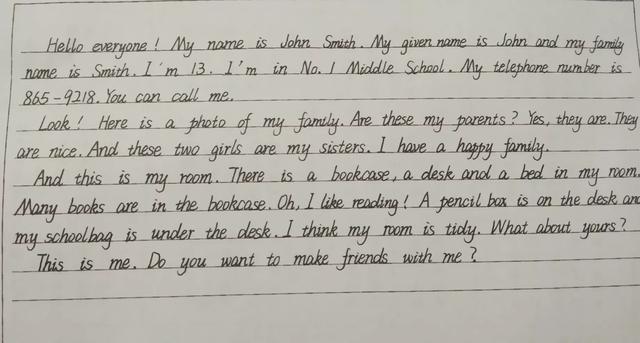 Hello everyone! My name is John Smith. My given name is John and my family
name is Smith. I'm 13. I'm in No. 1 Middle School. My telephone number is
865-9218. You can call me.
Look! Here is a photo of my family. Are these my parents? Yes, they are. They
are nice. And these two girls are my sisters. I have a happy family.
And this is my room. There is a bookcase, a desk and a bed in my room.
Many books are in the bookcase. Oh, I like reading! A pencil box is on the desk and
my schoolbag is under the desk. I think my room is tidy. What about yours?
This is me. Do you want to make friends with me?